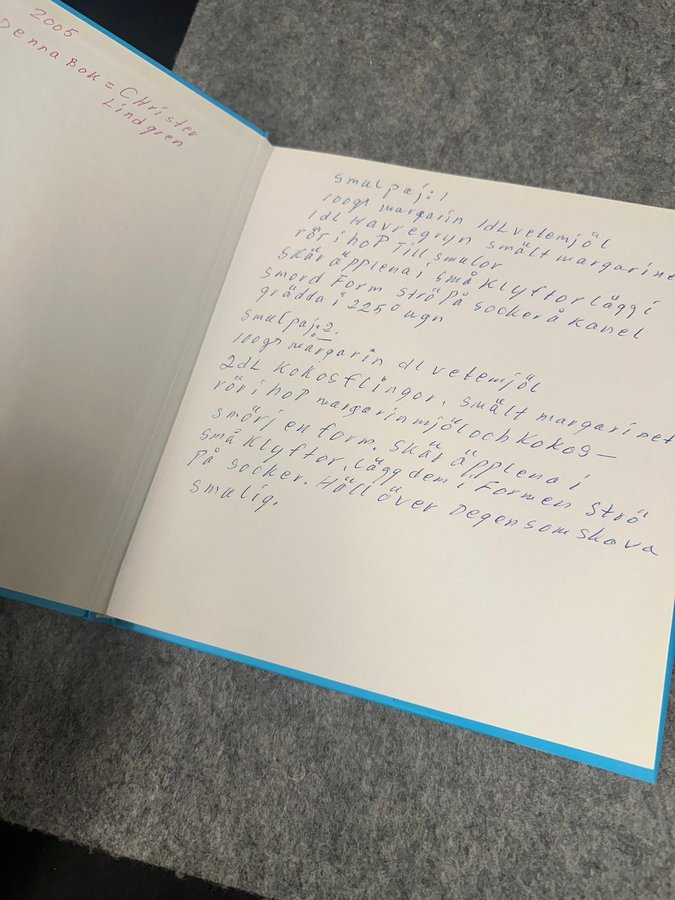 2005
Denna Bok = CHrister
Lindgren
smulpaj:1
100gr margarin 1dL vetemjöl
1dL Havregryn smält margarine
rör i hop Till smulor
skär äpplena i små klyftor lägg i
smord Form strö på socker å kanel
grädda i 225° ugn
smulpaj:2.
100gr margarin dl vetemjöl
2dL Kokosflingor. smält margarinet
rör i hop margarin mjöl och kokos-
smörj en form. skär äpplena i
små Klyftor. lägg dem i Formen strö
På socker. Häll över Degen som ska va
smulig.